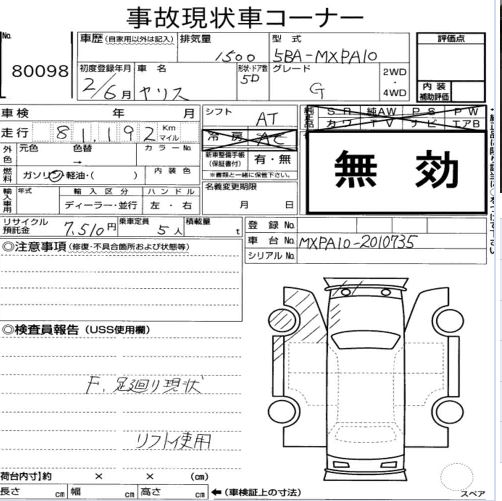 事故現状車コーナー
No.
80098
車歴 (自家用以外は記入)
排気量
1500
型式
5BA-MXPA10
評価点
初度登録年月
2/6月
車名
ヤリス
形状・ドア数
5D
グレード
G
2WD
・
4WD
内装
補助評価
車検 年 月
シフト
AT
純正品
SR 純AW PS PW
カワ TV ナビ エアB
走行 81,192 Km マイル
冷房 AC
無効
外色 元色 色替 カラーNo.
→
新車整備手帳
(保証書付)
有・無
※書類と一緒に保管下さい。
燃料 ガソリン・軽油・( ) 内装色
名義変更期限
月 日
輸入車用 年式 輸入区分 ハンドル
ディーラー・並行 左・右
リサイクル預託金 7,510円
乗車定員 5人
積載量 t
登録No.
車台No. MXPA10-2010735
シリアルNo.
◎注意事項 (修復・不具合箇所および状態等)
◎検査員報告 (USS使用欄)
F.足廻り現状
リフト使用
荷台内寸)約 × × (cm)
長さ cm 幅 cm 高さ cm
← (車検証上の寸法)
スペア